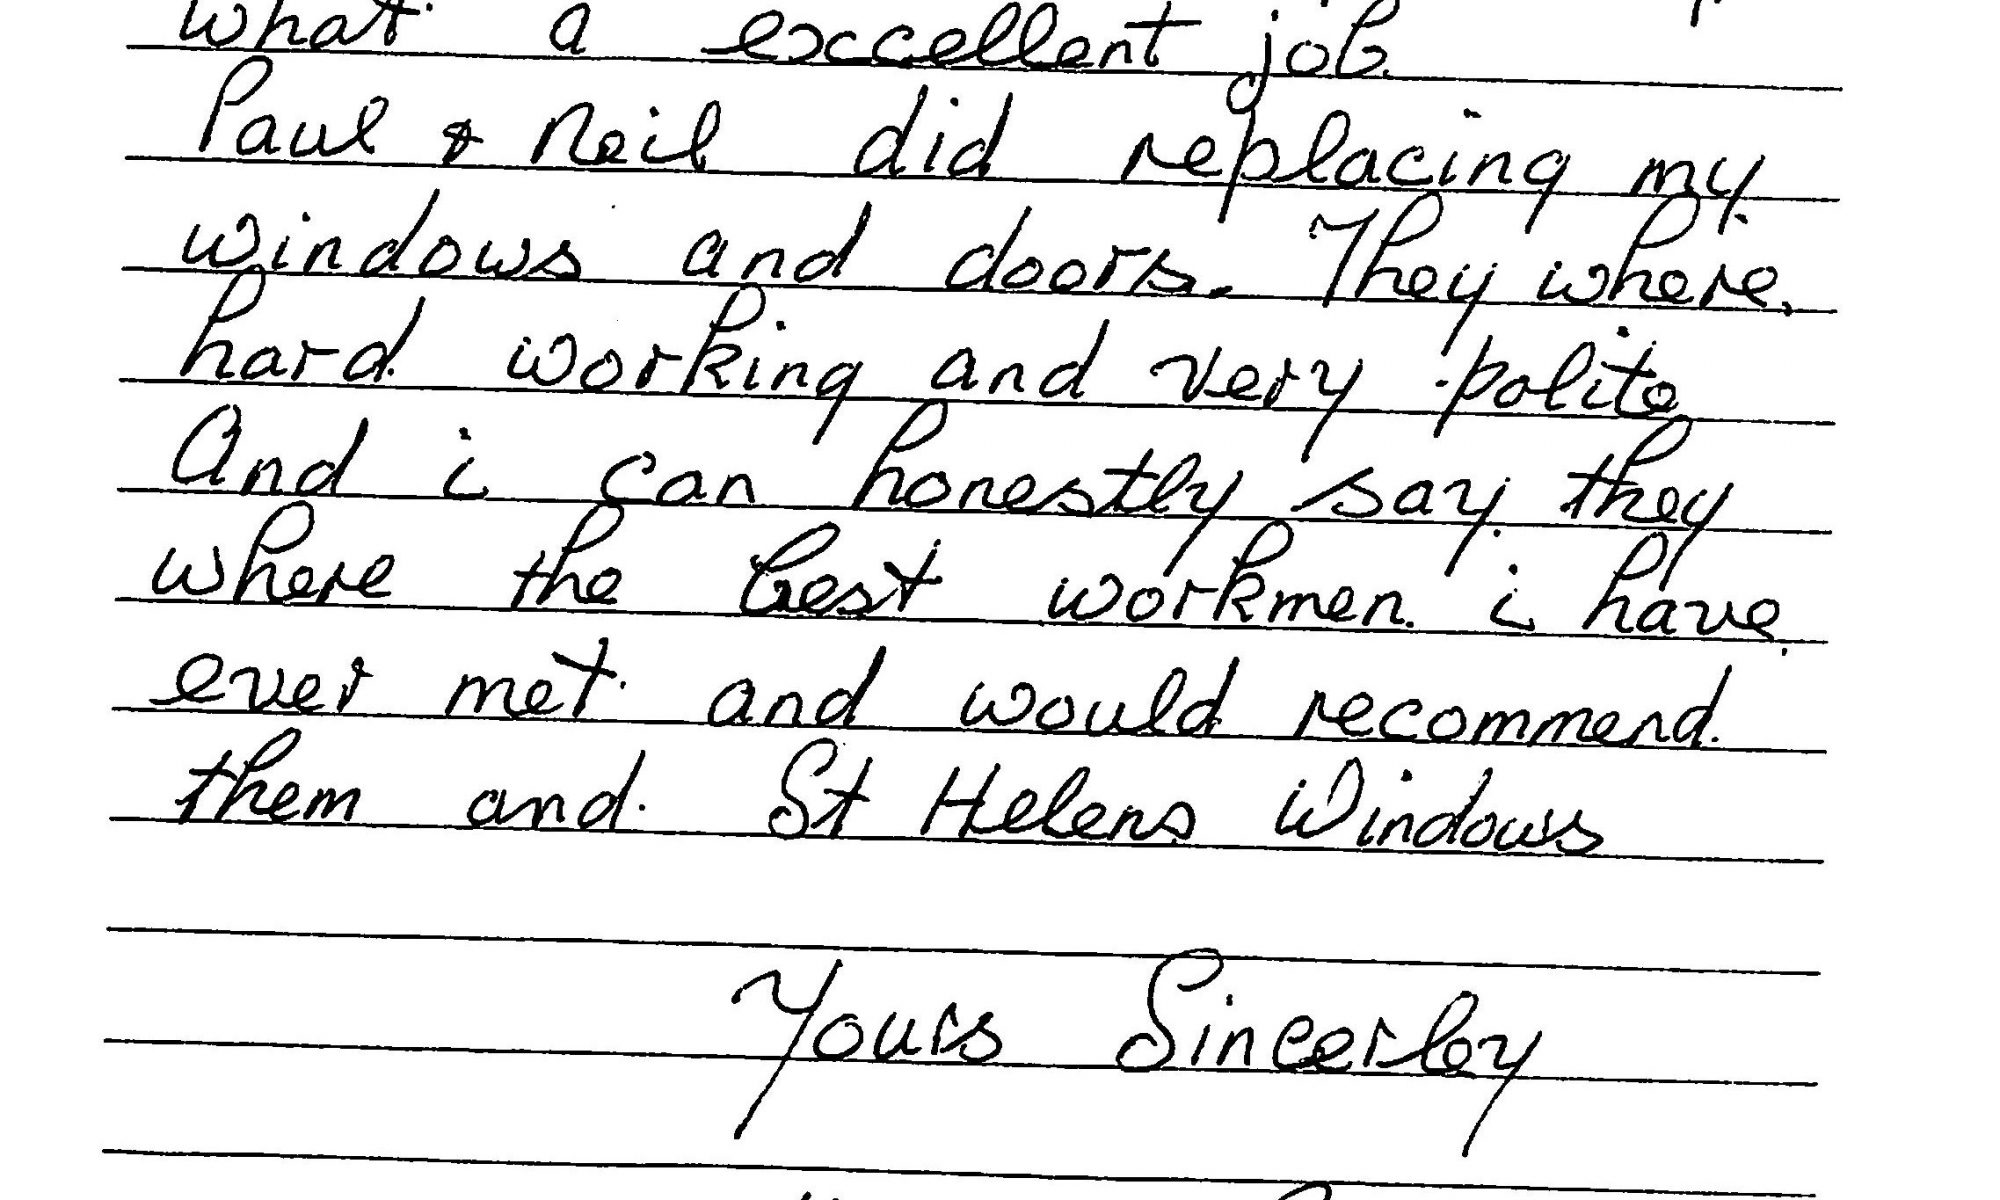 what a excellent job.
Paul & Neil did replacing my
windows and doors. They where.
hard working and very polite
And i can honestly say they
where the best workmen. i have
ever met and would recommend.
them and St Helens Windows
Yours Sincerley